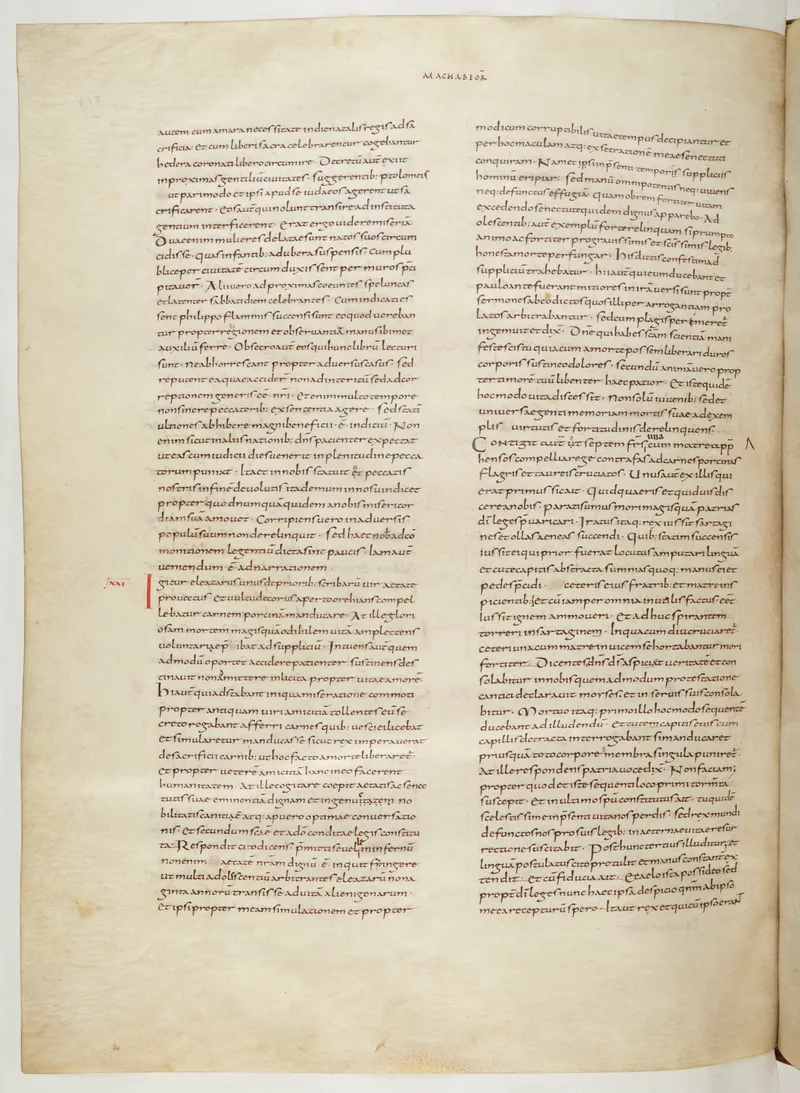 MACHABEOR̄
autem cum amara necessitate in die natalis regis ad sa
crificia · et cum liberi sacra celebrarentur cogebantur
hedera coronati libero circumire · Decretū aut̄ exiit
in proximas gentiliū ciuitates · suggerentib: ptolomeis
ut pari modo et ipsi apud se iudaeos agerent ut sa
crificarent · Eos aut̄ qui nolunt transire ad instituta
gentium interficerent · Erat ergo uidere miseriā
Duae enim mulieres delatae sunt natos suos circum
cidisse · quas infantib; ad ubera suspensis · Cum pu
blice per ciuitatē circumduxissent per muros p̄ci
pitauer̄ · Alii uero ad proximas coeuntes speluncas
et latenter sabbati diem celebrantes · Cum indicati es
sent philippo flammis succensi sunt eo quod uereban
tur propter religionem et obseruantiā manu sibimet
auxiliū ferre · Obsecro aut̄ eos qui hunc librū lecturi
sunt · ne abhorrescant propter aduersos casus · sed
reputent ea quae acciderunt non ad interitū sed ad cor
reptionem generis eē nr̄i · Et enim multo tempore
non sinere peccatorib; ex sententia agere · sed statī
ultiones adhibere magni beneficii · ē indiciū · Non
enim sicut in aliis nationib; dn̄s patienter expectat
ut eas cum iudicii dies uenerit in plenitudine pecca
torum puniat · Ita et in nobis statuit
nostris in fine deuolutis ita demum in nos uindicet
propter quod numquā quidem a nobis misericor
diam suā amouet · Corripiens uero in aduersis
populū suum non derelinquit · sed haec nobis ad cō
monitionem legentiū dicta sint paucis · Iam aut̄
ueniendum · ē ad narrationem
XXI
Igitur eleazarus unus de priorib: scribarū uir aetate
prouectus et uultu decorus aperto ore hians compel
lebatur carnem porcinā manducare · At ille glori
osam mortem magis quā odibilem uitā amplectens
uoluntariae p̄ibat ad suppliciū · Intuens aut̄ quem
admodū oportet accidere patienter sustinens des
tinauit non admittere inlicita propter uitae amorē ·
Hi aut̄ qui adstabant iniqua miseratione commoti
propter antiquam uiri amicitiā tollentes eū se
creto rogabant afferri carnes quib; uesci ei licebat
et simularetur manducasse sicut rex imperauerat
de sacrificii carnib; ut hoc facto a morte liberaret̄ ·
Et propter ueterē amicitiā hanc in eo facerent
humanitatem · At ille cogitare coepit aetatis ac senec
tutis suae eminentiā dignam et ingenuitatem no
bilitatis canitiē atq; a puero optimae conuersatio
nis · et secundum scāe et a dō conditae legis constitu
ta · Respondit cito dicens p̄mitti se uelle in infernū
non enim aetate nr̄am dignū · ē · inquit fingere
ut multi adolescentiū arbitrantes eleazarū nona
ginta annorū transisse ad uitā alienigenarum ·
Et ipsi propter meam simulationem et propter
modicum corruptibilis uitae tempus decipiantur et
per hoc maculam atq; execrationē meae senectuti
conquiram · Nam etsi in p̄senti tempore suppliciis
hominū eripiar · sed manū omnipotentis neq; uiuens
neq; defunctus effugiā · quam obrem fortiter uitam
excedendo senectute quidem dignus apparebo · Ad
olescentib; aut̄ exemplū forte relinquam si prompto
animo ac fortiter pro grauissimis et scīssimis legib;
honesta morte perfungar · His dictis confestim ad
suppliciū trahebatur · hi aut̄ qui eum ducebant et
paulo ante fuerant mitiores in irā uersi sunt propt̄
sermones ab eo dictos quos illi per arrogantiam pro
latos arbitrabantur · sed cum plagis perimeret̄
ingemuit et dix̄ · Dn̄e qui habes scām scientiā mani
feste scis tu quia cum a morte possem liberari duros
corporis sustineo dolores · secundū animā uero prop
ter timorē tuū libenter haec patior · Et iste quidē
hoc modo uita discessit · Non solū iuuenib; sed et
uniuersae genti memoriam mortis suae ad exem
plū uirtutis et fortitudinis derelinquens ·
Contigit aut̄ et septem fr̄s una cum matre app̄
hensos compelli a rege contra fas ad carnes porcinas
flagris et taureis cruciatos · Unus aut̄ ex illis qui
erat primus sic ait · Quid quaeris et quid uis dis
cere a nobis · parati sumus mori magis quā patrias
dī leges p̄uaricari · Iratus itaq; rex iussit sartagi
nes et ollas aeneas succendi · Quib; statim succensis
iussit ei qui prior fuerat locutus amputari linguā
et cute capitis abstracta summas quoq; manus ei et
pedes p̄cidi · ceteris eius fratrib; et matre ins
picientib; et cū iam per omnia inutilis factus eēt
iussit ignem ammoueri · et adhuc spirantem
torreri in sartagine · In qua cum diu cruciaret̄
ceteri una cum matre inuicem se hortabantur mori
fortiter · Dicentes dn̄s ds̄ aspiciet ueritatē et con
solabitur in nobis quem admodum protestatione
cantici declarauit moyses et in seruis suis consola
bitur · Mortuo itaq; primo illo hoc modo sequentē
ducebant ad illudendū · et cute capitis eius cum
capillis detracta interrogabant si manducaret
priusquā toto corpore membra singula puniret̄ ·
At ille respondens patria uoce dix̄ · Non faciam;
propter quod et iste sequenti loco primi tormēta
suscepit · Et in ultimo spū constitutus ait · tu quidē
scelestissime in p̄senti uita nos perdis · sed rex mundi
defunctos nos pro suis legib; in aeternae uitae resur
rectione suscitabit · Post hunc tertius illuditur et
linguā postulatus cito protulit et manus constanter ex
tendit · et cū fiducia ait · E caelo ista possideo sed
propt̄ dī leges nunc haec ipsa despicio qn̄m ab ipso
me ea recepturū spero · Ita ut rex et qui cū ipso erant